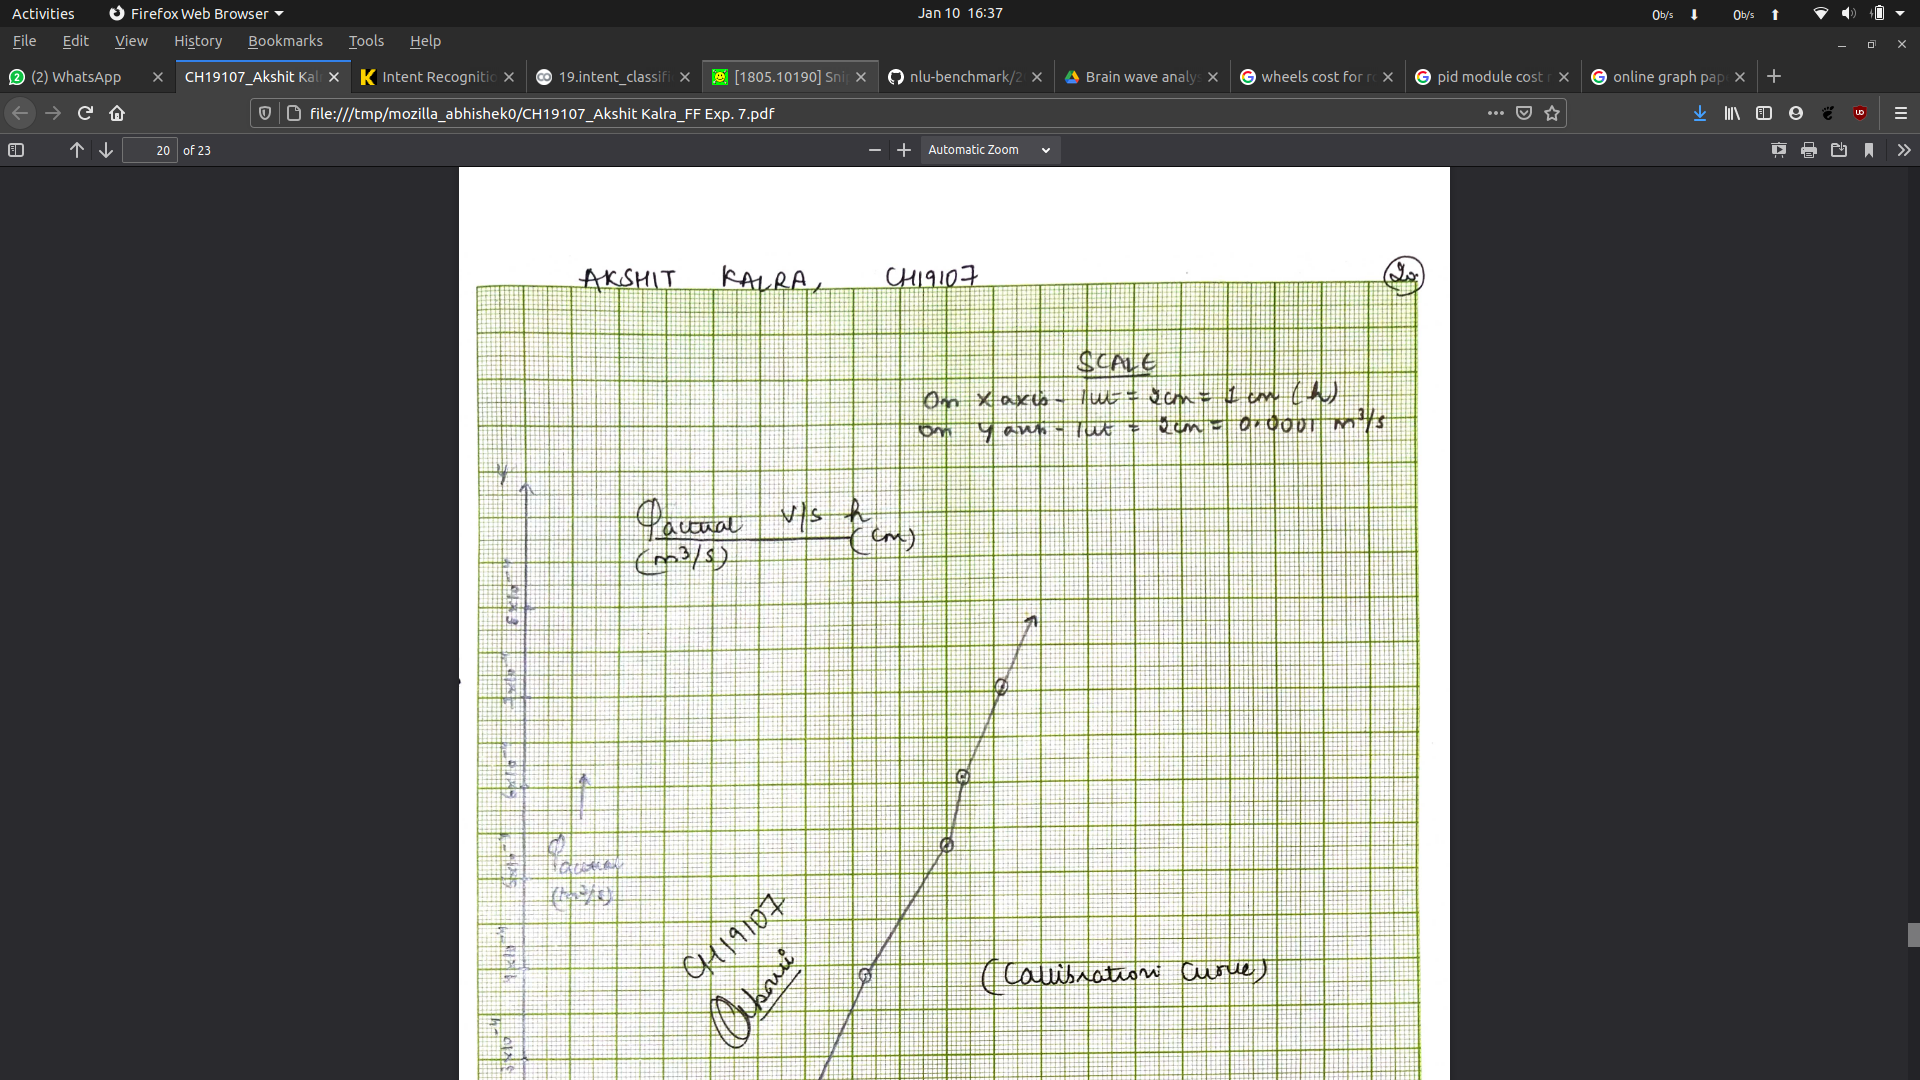 Activities Firefox Web Browser Jan 10 16:37 0b/s 0b/s
File Edit View History Bookmarks Tools Help
(2) WhatsApp CH19107_Akshit Kal Intent Recognitio 19.intent_classifi [1805.10190] Sni nlu-benchmark/2 Brain wave analy wheels cost for r pid module cost online graph pap
file:///tmp/mozilla_abhishek0/CH19107_Akshit Kalra_FF Exp. 7.pdf
20 of 23 Automatic Zoom
AKSHIT KALRA, CH19107 20
SCALE
On x axis - 1ut = 2cm = 1 cm (h)
On y axis - 1ut = 2cm = 0.0001 m³/s
y
Qactual v/s h
(m³/s) (cm)
8x10⁻⁴
7x10⁻⁴
6x10⁻⁴
5x10⁻⁴
Qactual
(m³/s)
4x10⁻⁴
CH19107
(Callibration Curve)
3x10⁻⁴